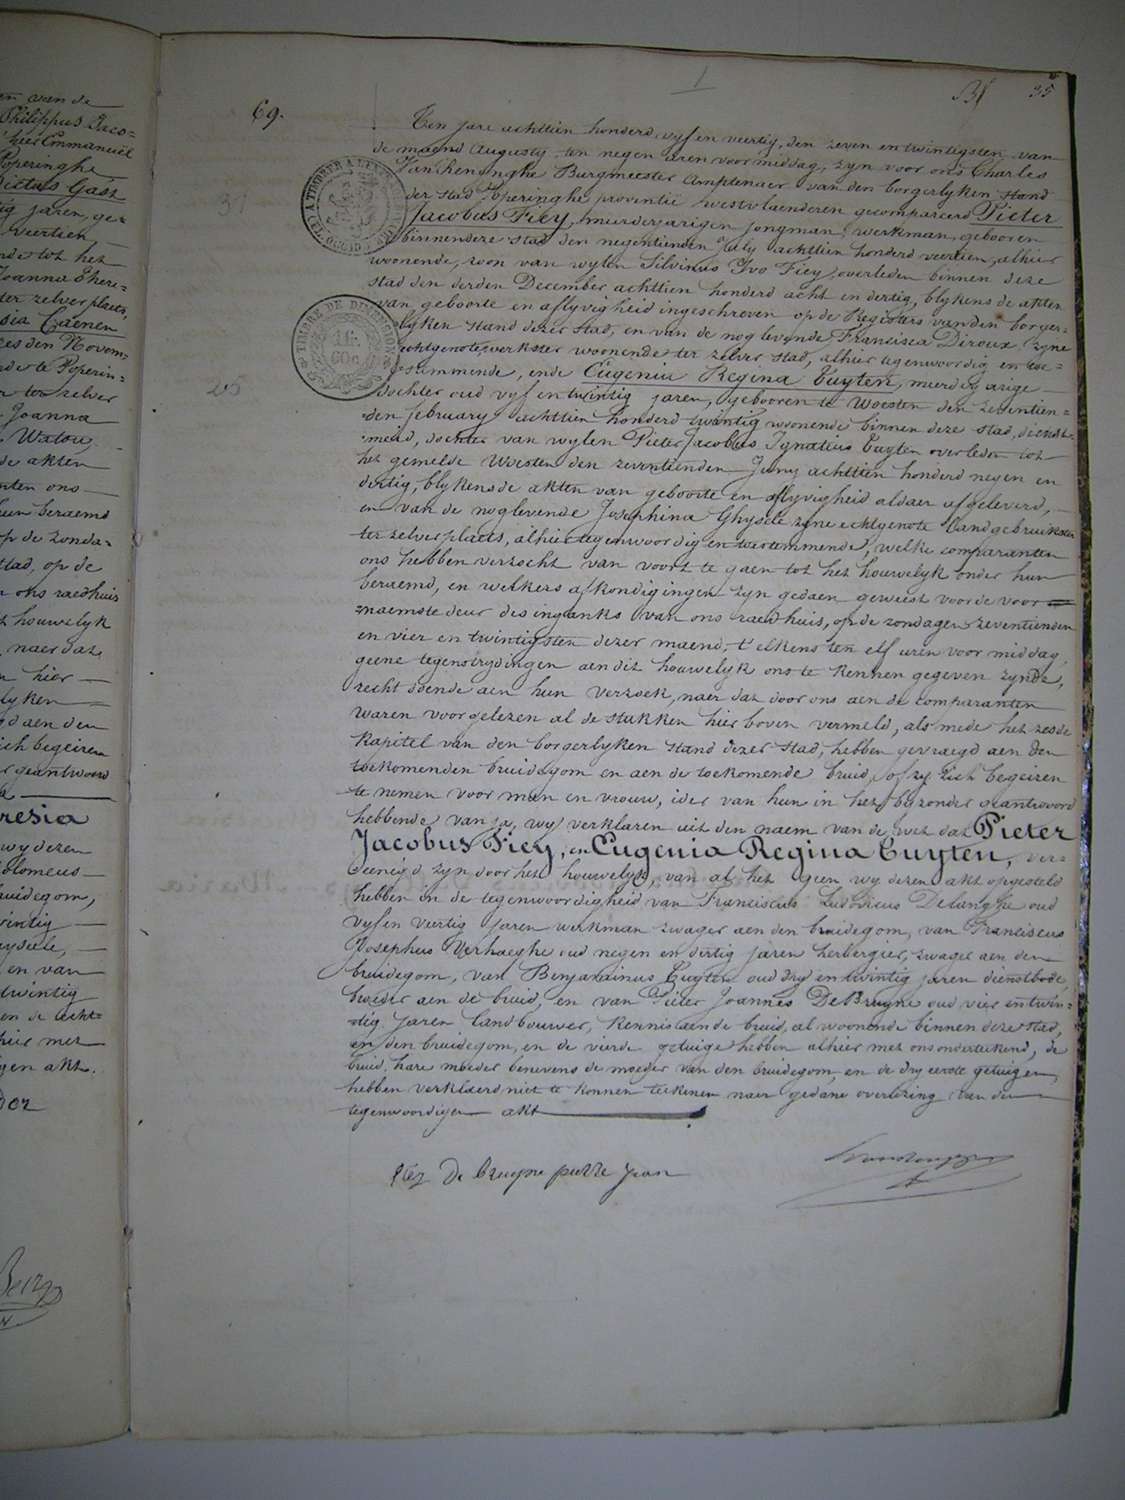 en van de
Philippus Jaco=
Poperinghe
tig jaren, ge=
veertien
nde tot het
Joanna There=
ter zelver plaets,
sia Caenen
es den Novem=
nde te Poperin=
n ter zelver
Joanna
Watou,
de akten
nten ons
een beraemd
op de zonda=
stad, op de
n ons raedhuis
t houwelyk
naer dat
n hier
lyken
gd aen den
zich begeiren
r geantwoord
a
resia
wy dezen
olomeus
ruidegom,
vintig
en van
twintig
en de echt=
hier met
gen akt.
69.
1
35
31
25
Ten jare achttien honderd, vyf en veertig, den zeven en twintigsten van
de maend Augusty, ten negen uren voor middag, zyn voor ons Charles
Van Renynghe Burgmeester Amptenaer van den borgerlyken stand
der stad Poperinghe provintie Westvlaenderen gecompareerd Pieter
Jacobus Fiey, meerderjarigen jongman, werkman, gebooren
binnen deze stad den negentienden July achttien honderd veertien, alhier
woonende, zoon van wylen Silvinus Ivo Fiey, overleden binnen deze
stad den derden December achttien honderd acht en dertig, blykens de akten
van geboorte en aflyvigheid ingeschreven op de Registers van den borger=
lyken stand dezer stad, en van de nog levende Francisca Deroux zyne
echtgenote, werkster woonende ter zelver stad, alhier tegenwoordig en toe=
stemmende, ende Eugenia Regina Tuyten, meerderjarige
dochter oud vyf en twintig jaren, gebooren te Woesten den zeventien=
den february achttien honderd twintig woonende binnen deze stad, dienst=
meid, dochter van wylen Pieter Jacobus Ignatius Tuyten overleden tot
het gemelde Woesten den zeventienden Juny achttien honderd negen en
dertig, blykens de akten van geboorte en aflyvigheid aldaer afgeleverd,
en van de nog levende Josephina Ghysele zyne echtgenote Landgebruikster
ter zelver plaets, alhier tegenwoordig en toestemmende, welke comparanten
ons hebben verzocht van voort te gaen tot het houwelyk onder hun
beraemd, en welkers afkondigingen zyn gedaen geweest voor de voor
naemste deur des ingangs van ons raedhuis, op de zondagen zeventienden
en vier en twintigsten dezer maend, t'elkens ten elf uren voor middag,
geene tegenstrydingen aen dit houwelyk ons te kennen gegeven zynde,
recht doende aen hun verzoek, naer dat door ons aen de comparanten
waren voorgelezen al de stukken hier boven vermeld, als mede het zesde
kapitel van den borgerlyken stand dezer stad, hebben gevraegd aen den
toekomenden bruidegom en aen de toekomende bruid, of zy zich begeiren
te nemen voor man en vrouw, ider van hun in het byzonder geantwoord
hebbende van ja, wy verklaren uit den naem van de wet dat Pieter
Jacobus Fiey, en Eugenia Regina Tuyten, ver=
eenigd zyn door het houwelyk, van al het geen wy dezen akt opgesteld
hebben in de tegenwoordigheid van Franciscus Ludovicus Delanghe oud
vyf en veertig jaren werkman zwager aen den bruidegom, van Franciscus
Josephus Verhaeghe oud negen en dertig jaren herbergier, zwager aen den
bruidegom, van Benjaminus Tuyten oud dry en twintig jaren dienstbode,
broeder aen de bruid, en van Pieter Joannes De Bruyne oud vier en twin=
tig jaren Landbouwer, kennis aen de bruid, al woonende binnen deze stad,
en den bruidegom, en de vierde getuige hebben alhier met ons onderteekend, de
bruid, hare moeder benevens de moeder van den bruidegom, en de dry eerste getuigen
hebben verklaerd niet te konnen teekenen naer gedane overlezing van den
tegenwoordigen akt
fiey De bruyne pierre jean